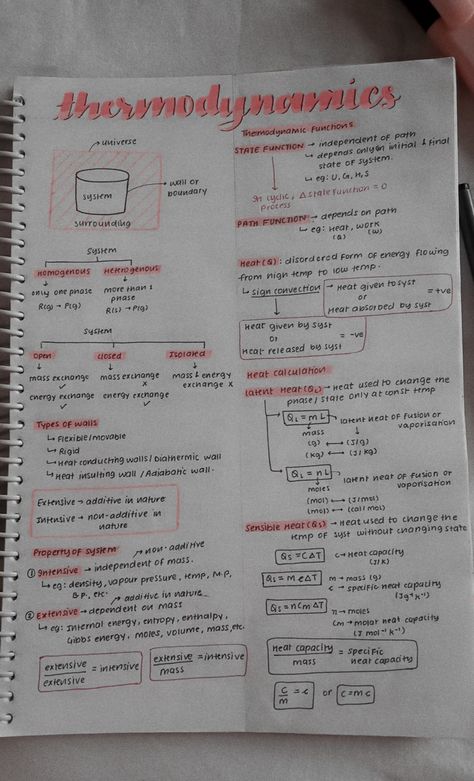 thermodynamics
universe
system
wall or
boundary
surrounding
System
Homogenous
Heterogenous
only one phase
more than 1
phase
R(g) → P(g)
R(s) → P(g)
System
Open
Closed
Isolated
mass exchange ✓
mass exchange x
mass & energy
exchange x
energy exchange ✓
energy exchange ✓
Types of walls
↳ Flexible/movable
↳ Rigid
↳ Heat conducting walls/Diathermic wall
↳ Heat insulting wall /Adiabatic wall.
Extensive → additive in nature
Intensive → non-additive in
nature
Property of system
non-additive
① Intensive → independent of mass.
↳ eg: density, vapour pressure, temp, M.P,
B.P, etc.
additive in nature
② Extensive → dependent on mass
↳ eg: Internal energy, entropy, enthalpy,
Gibbs energy, moles, volume, mass, etc.
extensive/extensive = intensive
extensive/mass = intensive
Thermodynamic Functions
STATE FUNCTION → independent of path
↳ depends only on initial & final
state of system.
↳ eg: U, G, H, S
In cyclic, Δ state function = 0
process
PATH FUNCTION → depends on path
↳ eg: Heat, work
(Q) (W)
Heat(Q): disordered form of energy flowing
from high temp to low temp.
↳ sign convection
→ Heat given to syst
or = +ve
Heat absorbed by syst
Heat given by syst
or = -ve
Heat released by syst
Heat calculation
latent Heat(QL) → Heat used to change the
phase/state only at const temp
QL = mL
latent heat of fusion or
vaporisation
mass
(g) ⟷ (J/g)
(kg) ⟷ (J/kg)
QL = nL
latent heat of fusion or
vaporisation
moles
(mol) ⟷ (J/mol)
(mol) ⟷ (cal/mol)
Sensible Heat(Qs) → Heat used to change the
temp of syst without changing state
Qs = CΔT
C → Heat capacity
(J/K)
Qs = mcΔT
m → mass (g)
c → specific heat capacity
(Jg⁻¹K⁻¹)
Qs = nCmΔT
n → moles
Cm → molar heat capacity
(J mol⁻¹K⁻¹)
Heat capacity/mass = specific
heat capacity
C/m = c or C = mc